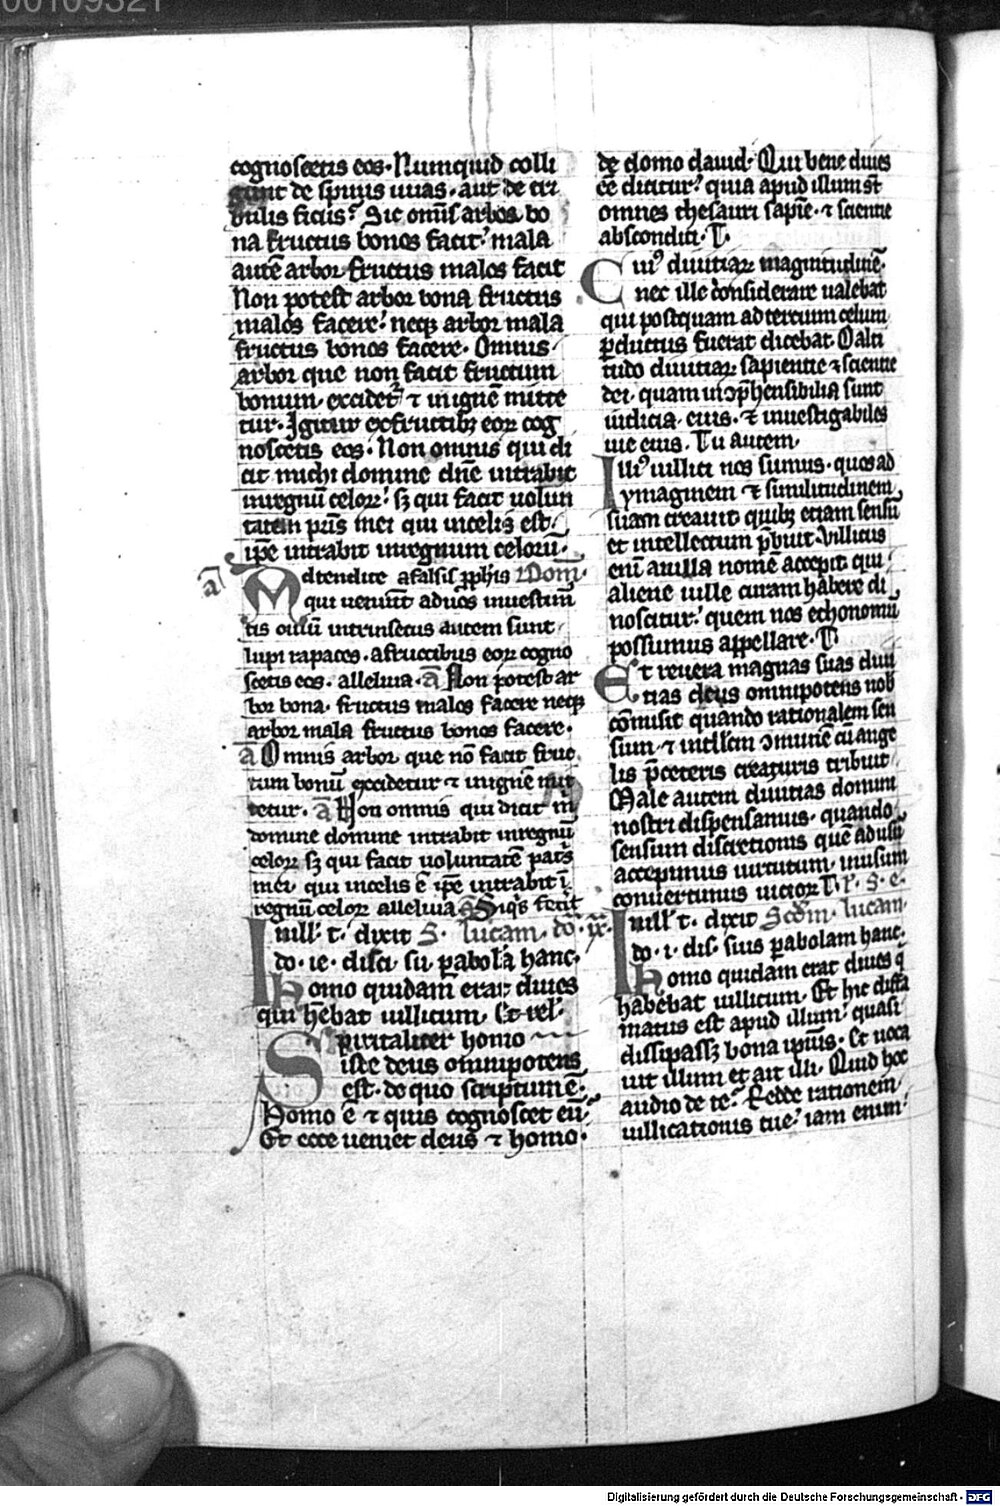 00109321
cognoscetis eos. Numquid colli
gunt de spinis uuas. aut de tri
bulis ficus? Sic om̄is arbos bo
na fructus bonos facit. mala
autē arbor fructus malos facit
Non potest arbor bona fructus
malos facere. neqꝫ arbor mala
fructus bonos facere. Omnis
arbor que non facit fructum
bonum. excidet᷑ ⁊ inignē mitte
tur. Igitur exfructibꝫ eoꝝ cog
noscetis eos. Non omnis qui di
cit michi domine dn̄e intrabit
inregnū celoꝝ. sꝫ qui facit uolun
tatem pr̄is mei qui incelis est.
ip̄e intrabit inregnum celorū.
Adtendite afalsis ꝓphis Dom̄.
qui ueniūt aduos inuestim̄
tis ouiū intrinsecus autem sunt
lupi rapaces. afructibus eoꝝ cogno
scetis eos. alleluia. a̅ Non potest ar
bor bona. fructus malos facere neqꝫ
arbor mala fructus bonos facere.
a̅ Omnis arbor que nō facit fruc
tum bonū excidetur ⁊ inignē mit
tetur. a̅ Non omnis qui dicit m̄
domine domine intrabit inregnū
celoꝝ sꝫ qui facit uoluntatē patris
mei. qui incelis ē ip̄e intrabit ī
regnū celoꝝ alleluia Siqͥs fecͥit
Inill. t. dixit S. lucam. do. ix.
do. ie. disci. su. pabolā hanc.
homo quidam erat diues
qui hēbat uillicum. Et rel.
Spiritaliter homo
iste deus omnipotens
est. de quo scriptum ē.
homo ē ⁊ quis cognoscet eū.
Et ecce ueniet deus ⁊ homo.
de domo dauid. Qui bene diues
ēē dicitur? quia apud illum st̄
omnes thesauri sapiē. ⁊ scientie
absconditi. T.
Cuiꝰ diuitiaꝝ magnitudinē.
nec ille considerare ualebat
qui postquam ad tercium celum
ꝑductus fuerat dicebat. O alti
tudo diuitiaꝝ sapientie ⁊ scientie
dei. quam inꝯp̄hensibilia sunt
iudicia. eius. ⁊ inuestigabiles
uie eius. Tu autem.
Illiꝰ uillici nos sumus. quos ad
ymaginem ⁊ similitudinem
suam creauit quibꝫ etiam sensū
et intellectum p̄buit. Villicus
enī auilla nomē accepit qui
aliene uille curam habere di
noscitur. quem nos echonomū
possumus appellare. T
Et reuera magnas suas diui
tias deus omnipotens nob
cōmisit quando rationalem sen
sum ⁊ intellcm ꝯmunē cū ange
lis p̄ceteris creaturis tribuit
Male autem diuitias domini
nostri dispensamus. quando
sensum discretionis quē ad usū
accepimus uirtutum. inusum
conuertimus uicioꝝ T. l. S. e.
Inill. t. dixit Scdm. lucam.
do. i. dis. suis pabolam hanc.
homo quidam erat diues q̇
habebat uillicum. Et hic diffa
matus est apud illum quasi
dissipassꝫ bona ipsius. Et uoca
uit illum et ait illi. Quid hoc
audio de te? Redde rationem
uillicationis tue. iam enim
Digitalisierung gefördert durch die Deutsche Forschungsgemeinschaft - DFG